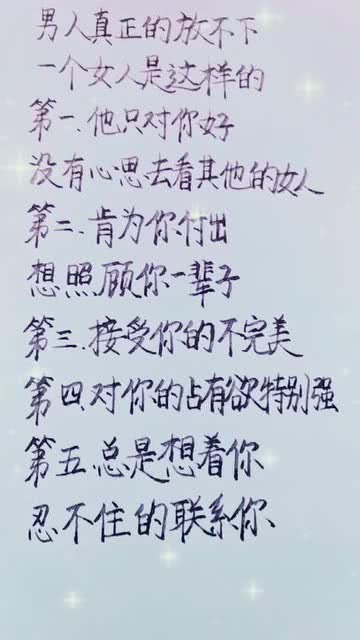 男人真正的放不下
一个女人是这样的
第一.他只对你好
没有心思去看其他的女人
第二.肯为你付出
想照顾你一辈子
第三.接受你的不完美
第四.对你的占有欲特别强
第五.总是想着你
忍不住的联系你.